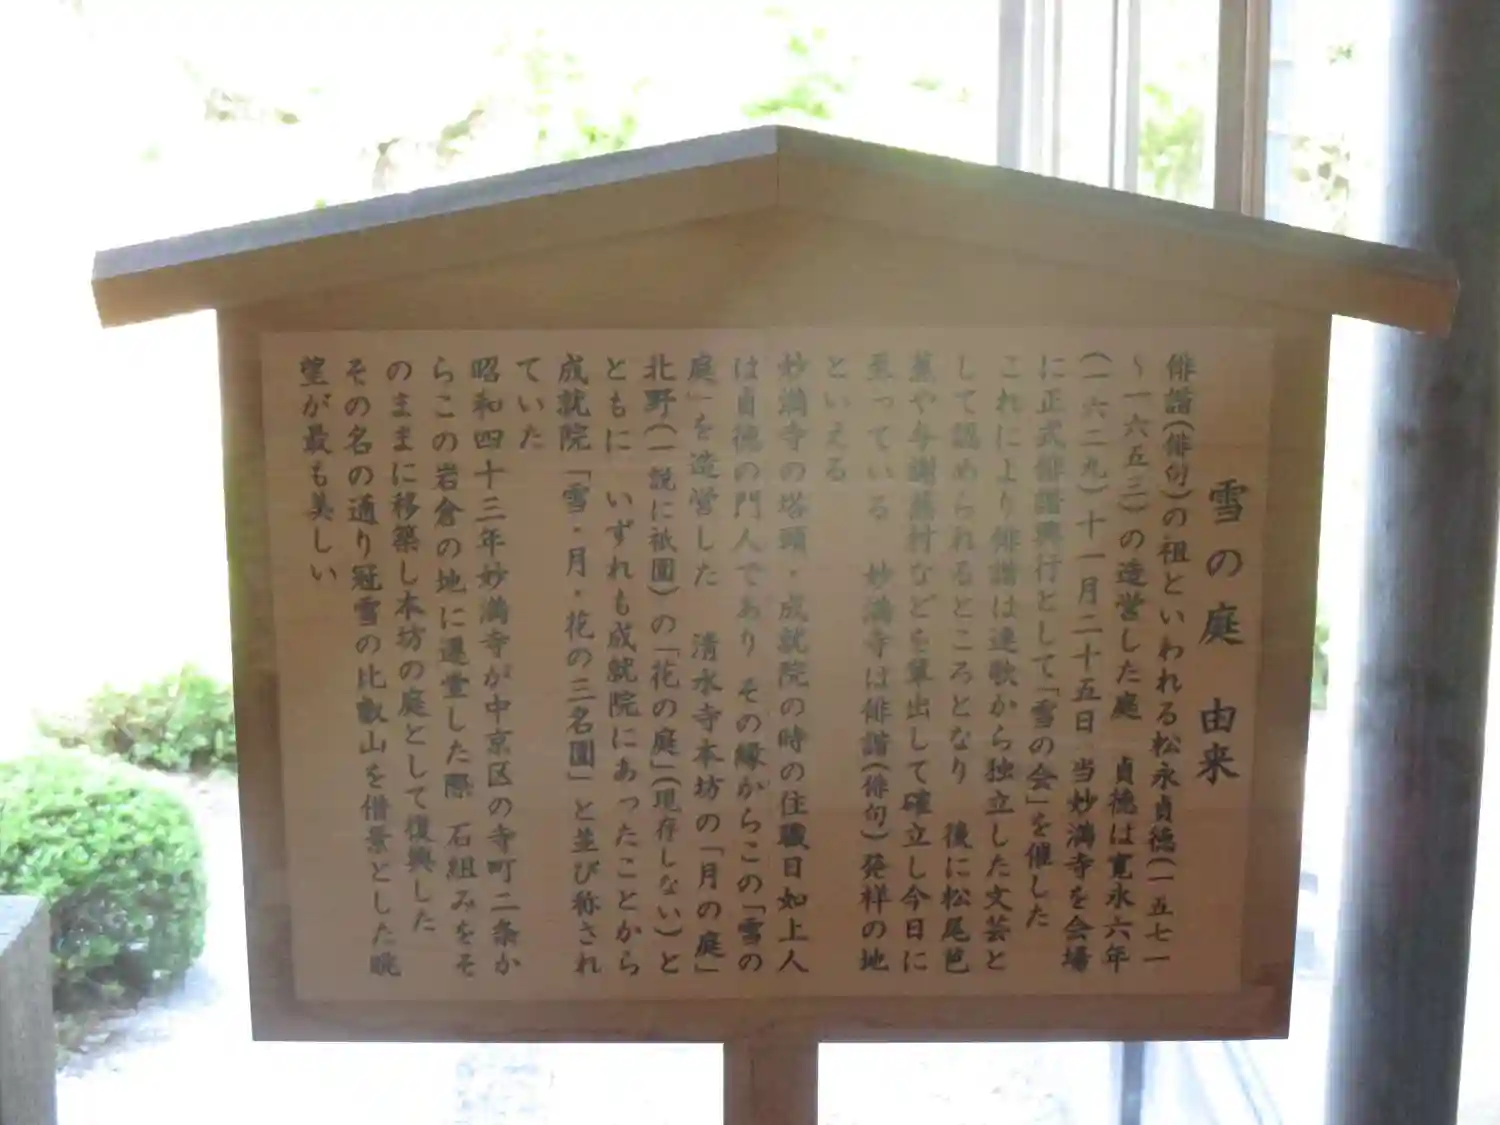 雪の庭 由来
俳諧(俳句)の祖といわれる松永貞徳(一五七一
〜一六五三)の造営した庭 貞徳は寛永六年
(一六二九)十一月二十五日、当妙満寺を会場
に正式俳諧興行として「雪の会」を催した
これにより俳諧は連歌から独立した文芸と
して認められるところとなり 後に松尾芭
蕉や与謝蕪村などを輩出して確立し今日に
至っている 妙満寺は俳諧(俳句)発祥の地
といえる
妙満寺の塔頭・成就院の時の住職日如上人
は貞徳の門人であり その縁からこの「雪の
庭」を造営した 清水寺本坊の「月の庭」
北野(一説に祇園)の「花の庭」(現存しない)と
ともに いずれも成就院にあったことから
成就院「雪・月・花の三名園」と並び称され
ていた
昭和四十三年妙満寺が中京区の寺町二条か
らこの岩倉の地に遷堂した際 石組みをそ
のままに移築し本坊の庭として復興した
その名の通り冠雪の比叡山を借景とした眺
望が最も美しい